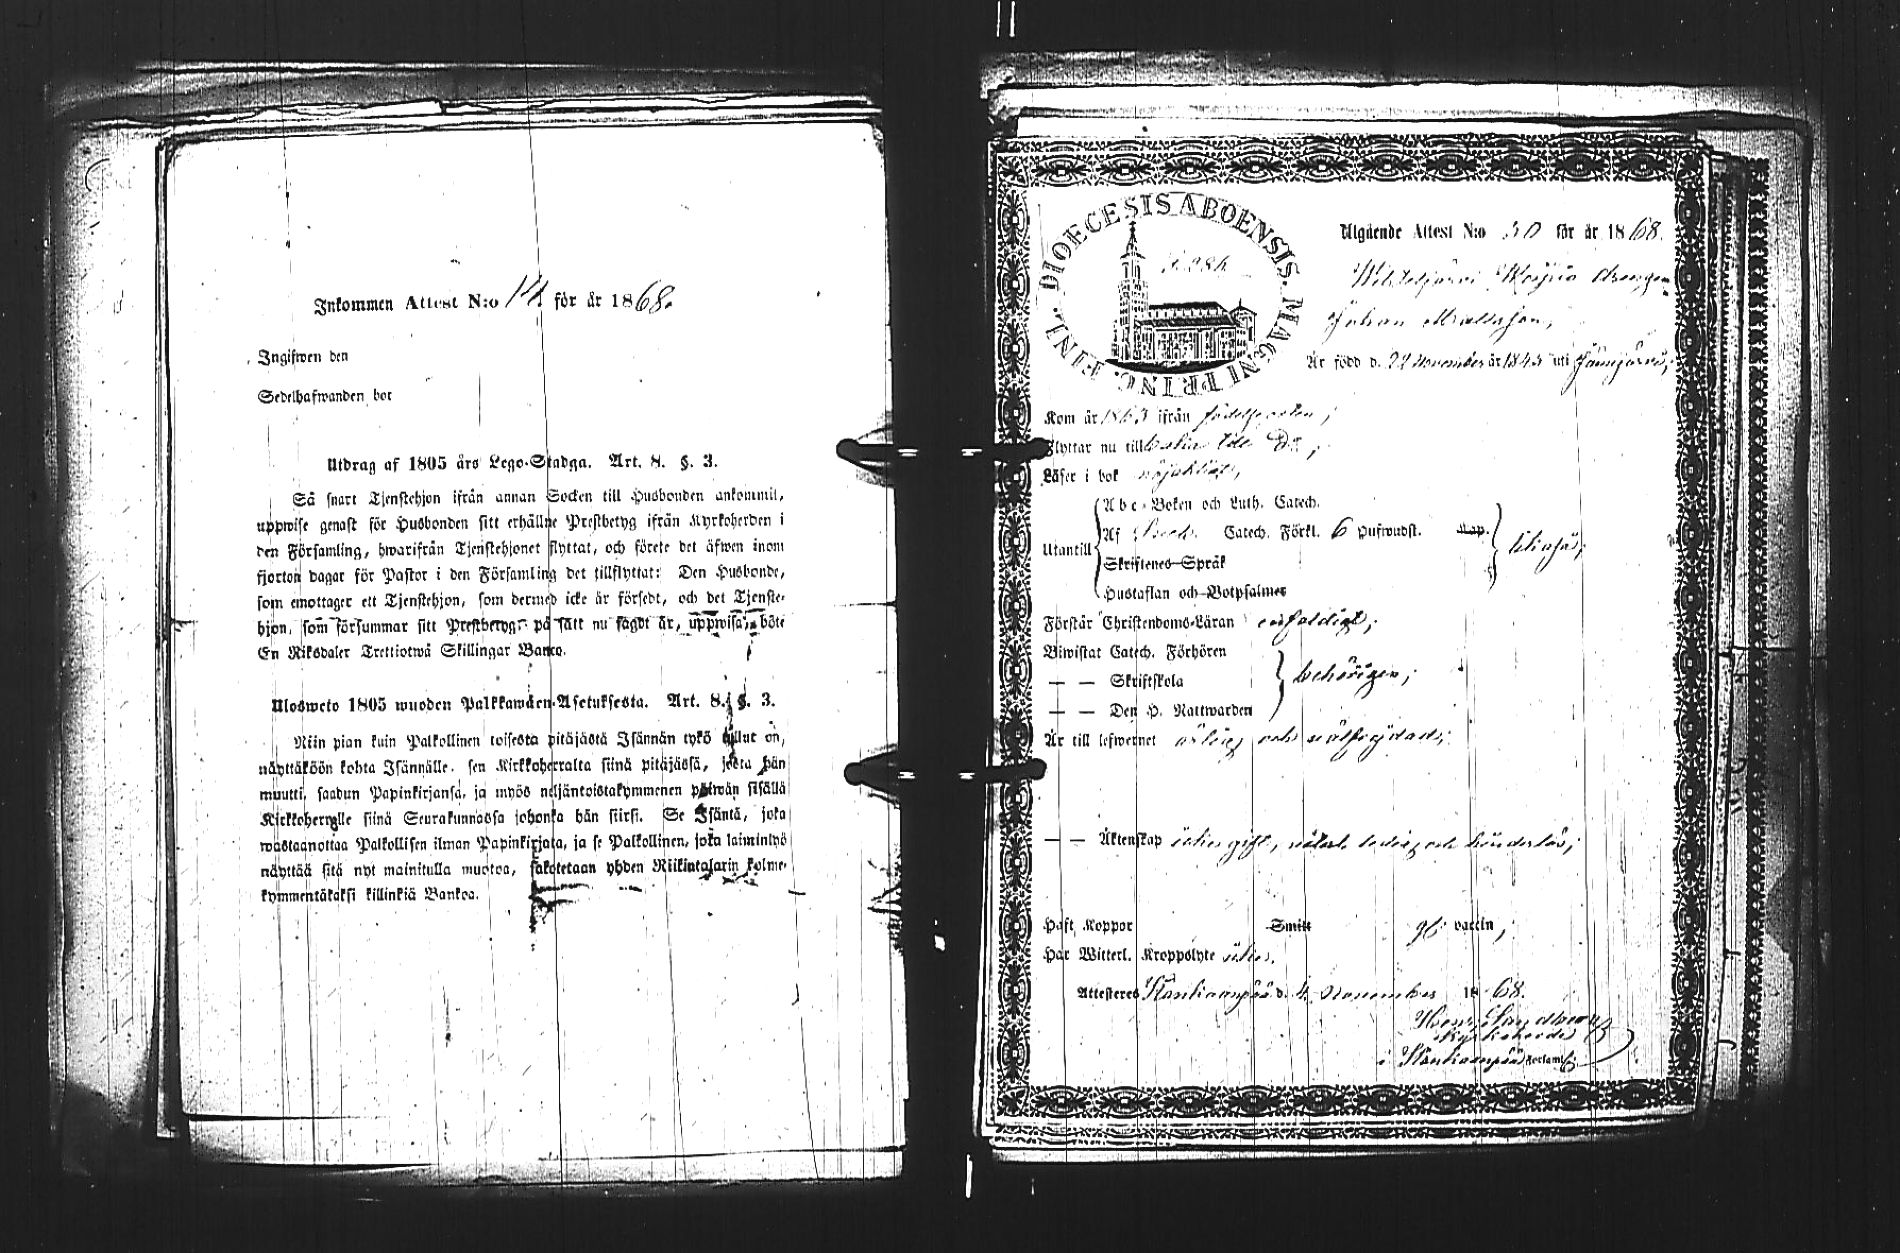 Inkommen Attest N:o 14 för år 1868.
Ingifwen den
Sedelhafwanden bor
Utdrag af 1805 års Lego-Stadga. Art. 8. §. 3.
Så snart Tjenstehjon ifrån annan Socken till Husbonden ankommit,
uppwise genast för Husbonden sitt erhållne Prestbetyg ifrån Kyrkoherden i
den Församling, hwarifrån Tjenstehjonet flyttat, och förete det äfwen inom
fjorton dagar för Pastor i den Församling det tillflyttat: Den Husbonde,
som emottager ett Tjenstehjon, som dermed icke är försedt, och det Tjenste-
hjon, som försummar sitt Prestbetyg, på sätt nu sagdt är, uppwisa, böte
En Riksdaler Trettiotwå Skillingar Banco.
Ulosweto 1805 wuoden Palkkawäen-Asetuksesta. Art. 8. §. 3.
Niin pian kuin Palkollinen toisesta pitäjästä Isännän tykö tullut on,
näyttäköön kohta Isännälle, sen Kirkkoherralta siinä pitäjässä, josta hän
muutti, saadun Papinkirjansa, ja myös neljäntoistakymmenen päiwän sisällä
Kirkkoherralle siinä Seurakunnassa johonka hän siirsi. Se Isäntä, joka
wastaanottaa Palkollisen ilman Papinkirjata, ja se Palkollinen, joka laiminlyö
näyttää sitä nyt mainitulla muotoa, sakotetaan yhden Riikintalarin kolme-
kymmentäkaksi killinkiä Bankoa.
DIOECESIS ABOENSIS. MAGNI PRINC. FINL.
Utgående Attest N:o 30 för år 1868.
drengen
Johan Mattsson,
Är född d. 22 November år 184 uti Jämijärvi,
Kom år 1863 ifrån födelseorten,
Flyttar nu till
Läser i bok nöjaktigt,
Abc-Boken och Luth. Catech.
Af Catech. Förkl. 6 Hufwudst. Kap.
Utantill
Skriftenes-Språk
Hustaflan och Botpsalmer
Förstår Christendoms-Läran enfaldigt,
Biwistat Catech. Förhören
— — Skriftskola behörigen,
— — Den H. Nattwarden
Är till lefwernet ärlig och wälfrejdad,
— — Äktenskap icke gift, utan ledig och hinderlös,
Haft Koppor Smitt vaccin,
Har Witterl. Kroppslyte icke.
Attesteras Kankaanpää d. 4 November 1868.
Kyrkoherde
i Kankaanpää Församl.